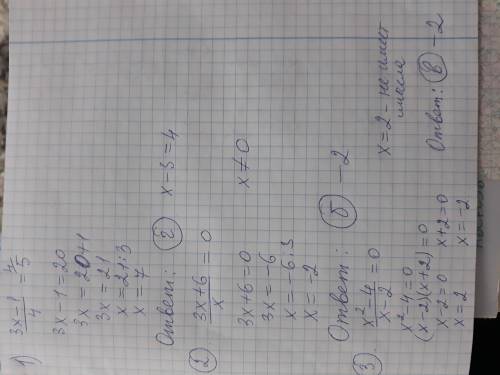 1) 3x-1/4 = 5
3x-1=20
3x=20+1
3x=21
x=21:3
x=7
Ответ: г x-3=4
2 3x+6/x = 0
3x+6=0 x≠0
3x=-6
x=-6:3
x=-2
Ответ: б -2
3 x²-4/x-2 = 0
x²-4=0
(x-2)(x+2)=0
x-2=0 x+2=0
x=2 x=-2
x=2 - не имеет
смысла
Ответ: в -2